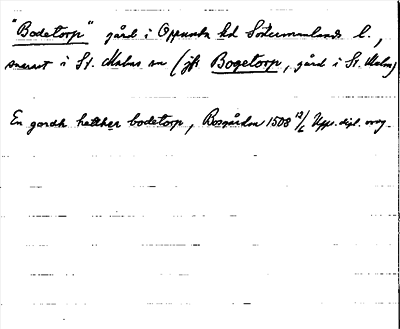 "Bodetorp" gård i Oppunda hd Södermanlands l.,
snarast i St. Malms sn (jfr Bogetorp, gård i St. Malm)
En gardh hetther bodetorp, Bosgården 1508 12/6 Upps. dipl. orig.